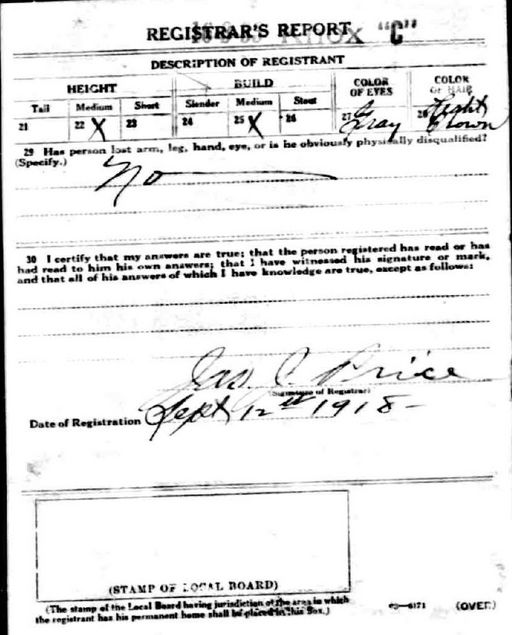 REGISTRAR'S REPORT
KNOX "C"
DESCRIPTION OF REGISTRANT
HEIGHT BUILD COLOR OF EYES COLOR OF HAIR
Tall Medium Short Slender Medium Stout
21 22 X 23 24 25 X 26 27 Gray 28 Light Brown
29 Has person lost arm, leg, hand, eye, or is he obviously physically disqualified?
(Specify.)
No
30 I certify that my answers are true; that the person registered has read or has
had read to him his own answers; that I have witnessed his signature or mark,
and that all of his answers of which I have knowledge are true, except as follows:
Jas. C. Price
(Signature of Registrar)
Date of Registration Sept 12th 1918
(STAMP OF LOCAL BOARD)
(The stamp of the Local Board having jurisdiction of the area in which
the registrant has his permanent home shall be placed in this box.)
03—6171 (OVER)